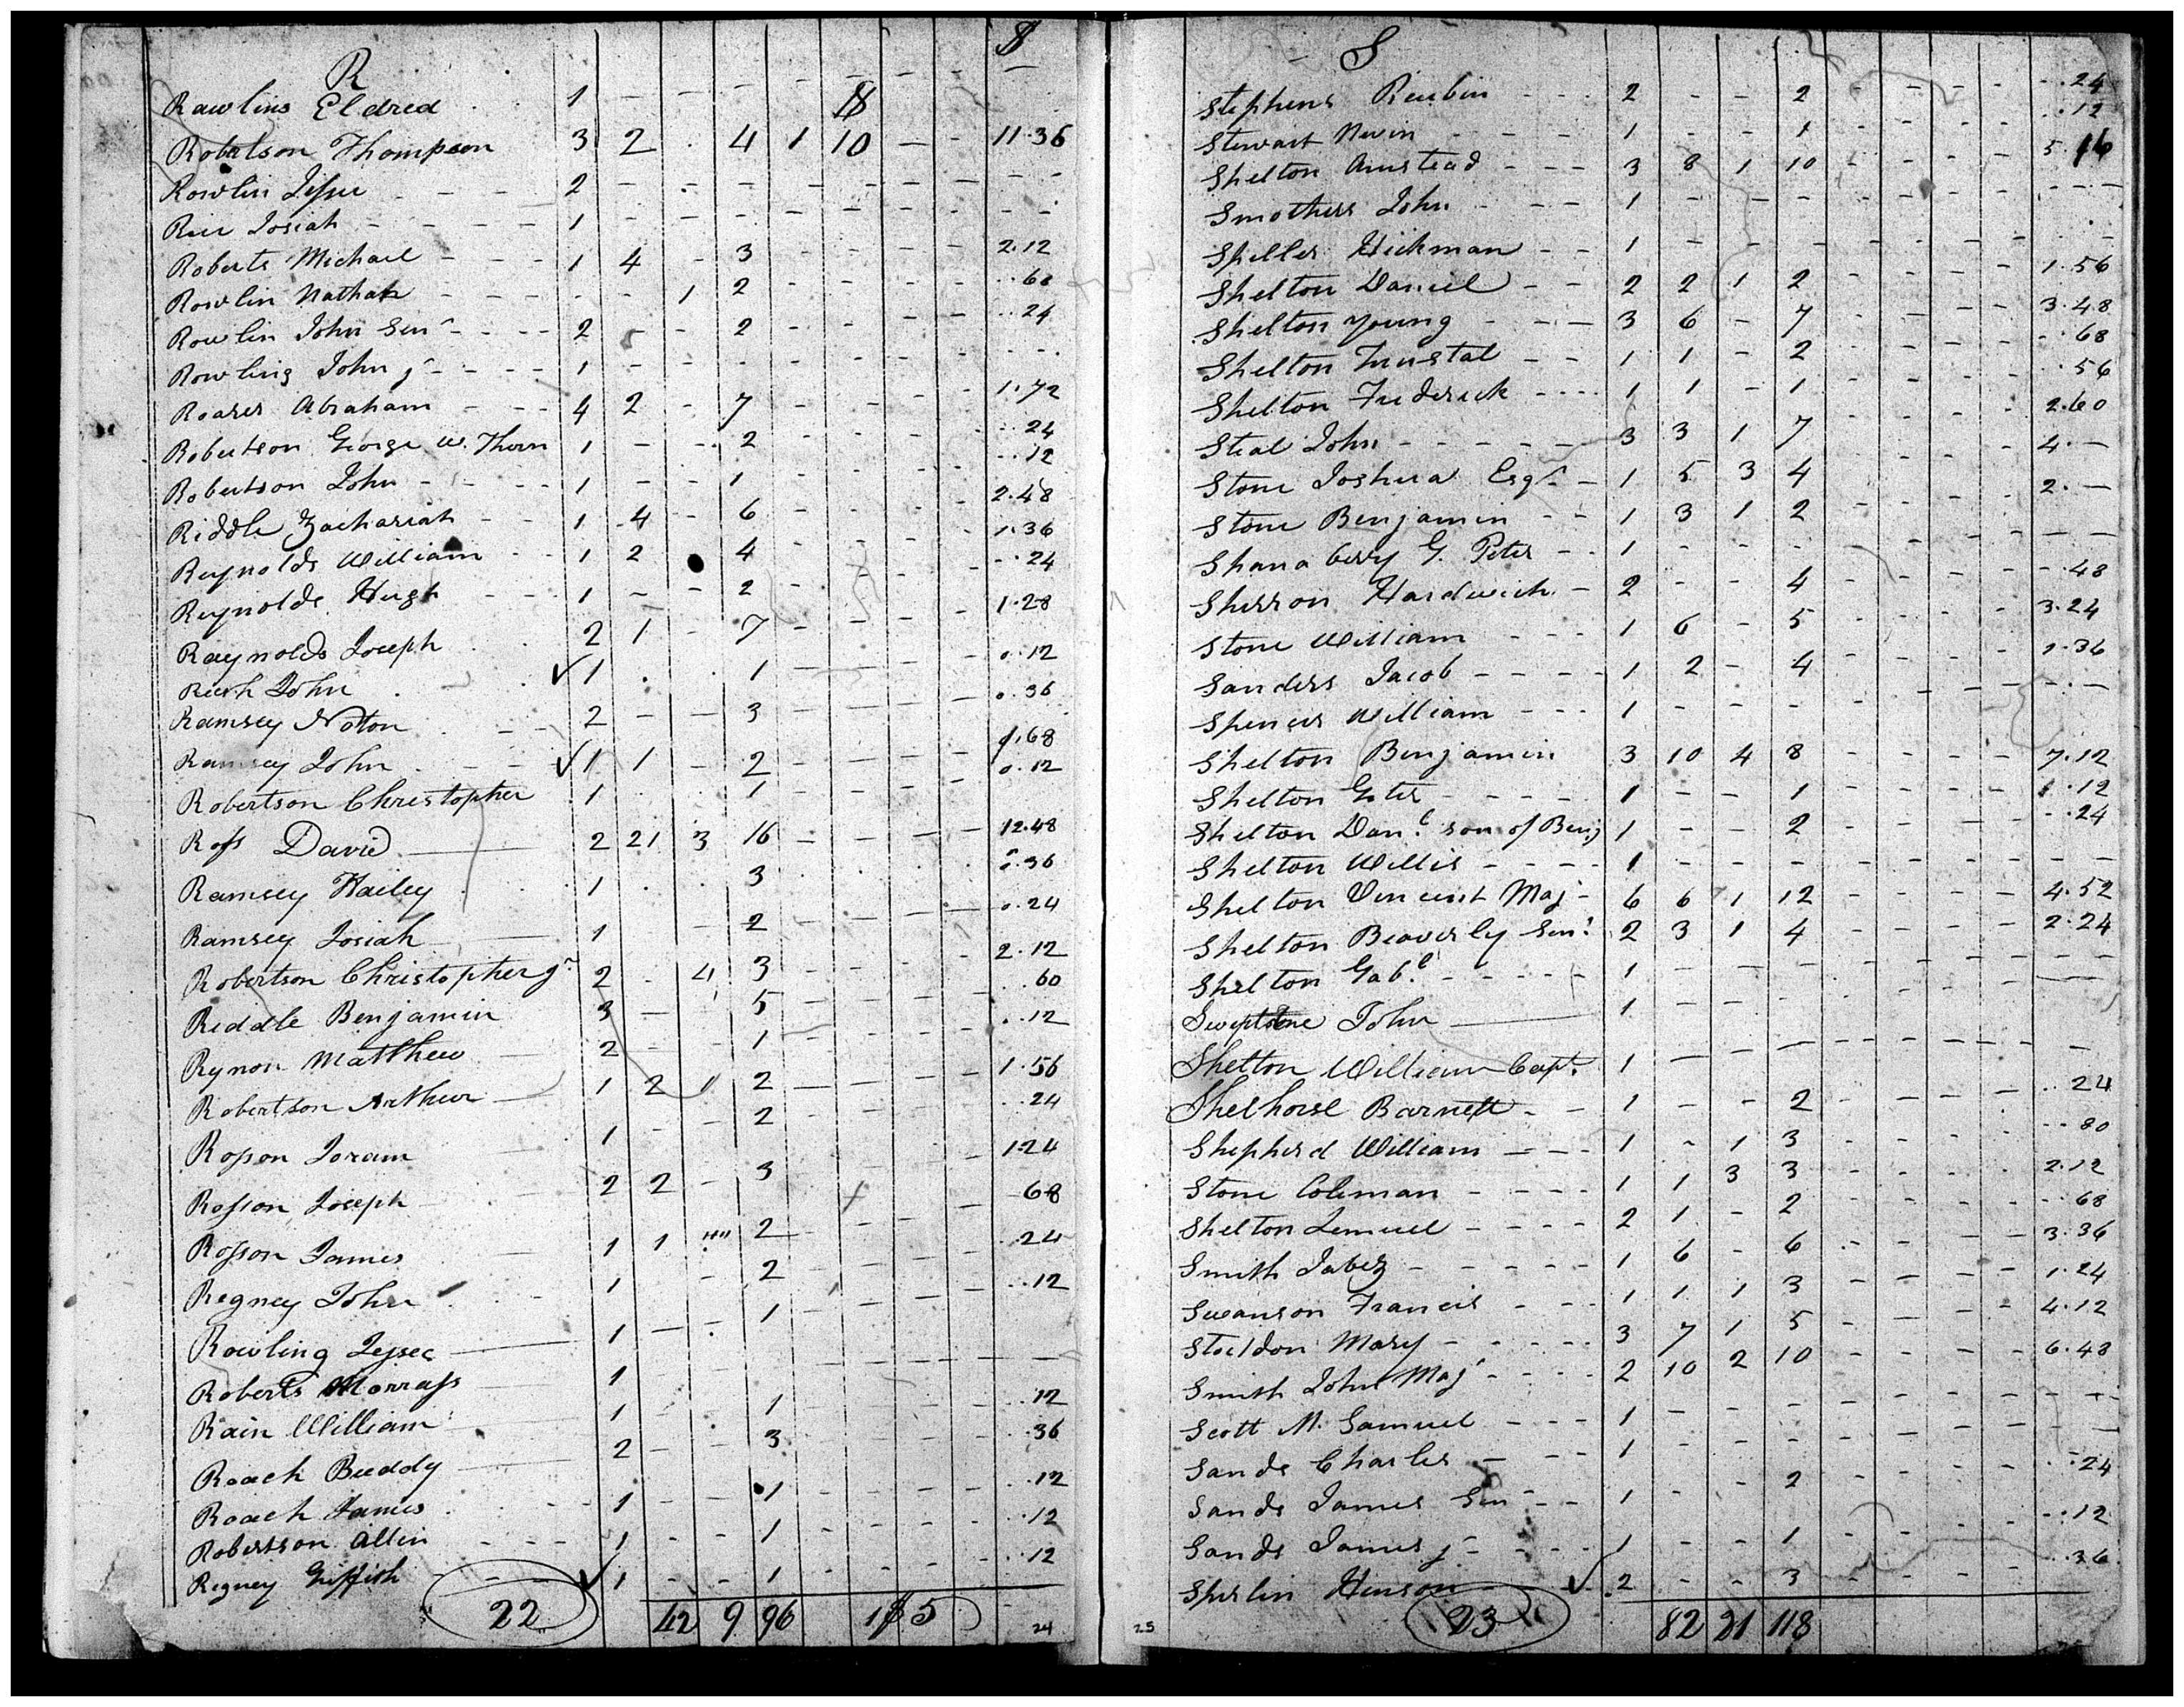 R $
Rawlins Eldred 1 $
Robertson Thompson 3 2 . 4 1 10 - 11.36
Rowlin Jesse - - 2 - . - - - - - -
Rice Josiah - - - - 1 - - - - - - -
Roberts Michael - - - 1 4 - 3 2.12
Rowlin Nathan - - - - - 1 2 - - - - ..68
Rowlin John Senr - - - - 2 - - 2 - - - - ..24
Rowling John jr - - - - 1 - - - - - - -
Roarer Abraham - - - 4 2 - 7 - - - - 1.72
Robertson George W. Thorn 1 - - 2 - - - - ..24
Robertson John - - - - 1 - - 1 - - - - ..12
Riddle Zachariah - - 1 4 - 6 - - - - 2.48
Reynolds William - - 1 2 4 - - - - 1.36
Reynolds Hugh - - 1 - - 2 - - - - ..24
Raynolds Joseph 2 1 - 7 - - - - 1.28
Rush John ✓ 1 . . 1 - - - - 0.12
Ramsey Noton - - 2 - - 3 - - - - 0.36
Ramsey John - - ✓ 1 1 - 2 - - - - .68
Robertson Christopher 1 . . 1 - - - - 0.12
Ross David 2 21 3 16 - - - - 12.48
Ramsey Hailey 1 . . 3 . . . . 0.36
Ramsey Josiah 1 - - 2 - - - - 0.24
Robertson Christopher jr 2 - 4 3 - - - - 2.12
Riddle Benjamin 3 - 5 - - - - .60
Rynon Matthew 2 - - 1 - - - - .12
Robertson Arthur 1 2 1 2 - - - - 1.56
Rosson Joram 1 - - 2 - - - - .24
Rosson Joseph 2 2 - 3 - - - - 1.24
Rosson James 1 1 "" 2 - - - - 68
Regney John 1 - - 2 - - - - .24
Rowling Jessee 1 - . 1 - - - - ..12
Roberts Morrass 1
Rain William 1 1 .12
Roach Buddy 2 - - 3 .36
Roach James 1 - - 1 .12
Robertson Allin 1 - - 1 - - - - .12
Regney Griffith - - - ✓ 1 - - 1 - - - - ..12
22 42 9 96 1$5
24
S
Stephens Reubin - - - 2 - - 2 - - - - ..24
Stewart Nevin - - - - 1 - - 1 - - - - ..12
Shelton Amstead - - - 3 8 1 10 - - - - 5.16
Smothers John - - - 1 - - - - - - -
Speller Hickman - - 1 - - - - - - -
Shelton Daniel - - 2 2 1 2 - - - - 1.56
Shelton Young - - - 3 6 - 7 - - - - 3.48
Shelton - - 1 1 - 2 - - - - .68
Shelton Frederick - - - - 1 1 - 1 - - - - .56
Steal John - - - - - 3 3 1 7 - - - - 2.60
Stone Joshua Esqr - - 1 5 3 4 - - - - 4.-
Stone Benjamin - - 1 3 1 2 - - - - 2.-
Shanaberry G. Peter - - 1 - - - - - - -
Sherron Hardwich - 2 - - 4 - - - - .48
Stone William - - - 1 6 - 5 - - - - 3.24
Sanders Jacob - - - - 1 2 - 4 - - - - 1.36
Spencer William - - - 1 - - - - - - -
Shelton Benjamin 3 10 4 8 - - - - 7.12
Shelton - - - - 1 - - 1 - - - - .12
Shelton Danl son of Benj 1 - - 2 - - - - ..24
Shelton Willis - - - - 1 - - - - - - -
Shelton Vincent Majr - 6 6 1 12 - - - - 4.52
Shelton Beaverly Senr 2 3 1 4 - - - - 2.24
Shelton Gabl - - - - - 1 - - - - - - -
Sweptstone John 1 - - -
Shelton William Capt. 1 - - - - - - - -
Shelhorse Barnett - - 1 - - 2 - - - - ..24
Shepherd William - - - 1 - 1 3 - - - - ..80
Stone Coleman - - - - 1 1 3 3 - - - - 2.12
Shelton Lemuel - - - - 2 1 - 2 - - - - .68
Smith Jabez - - - - - 1 6 - 6 - - - - 3.36
Swanson Francis - - - 1 1 1 3 - - - - 1.24
Stockdon Mary - - - - - 3 7 1 5 - - - - 4.12
Smith John Majr - - - - 2 10 2 10 - - - - 6.48
Scott M. Samuel - - - 1 - - - - - - -
Sands Charles - - - 1 - - - - - - -
Sands James Senr - - 1 - - 2 - - - - ..24
Sands James jr - - - - 1 - - 1 - - - - ..12
Sherlin Hinson ✓ 2 - - 3 - - - - .36
23 82 21 118
25